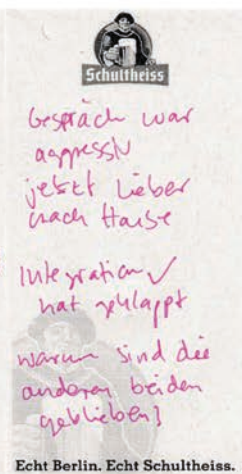 Schultheiss
Gespräch war
aggressiv
jetzt lieber
nach Hause
Integration ✓
hat geklappt
warum sind die
anderen beiden
geblieben?
Echt Berlin. Echt Schultheiss.